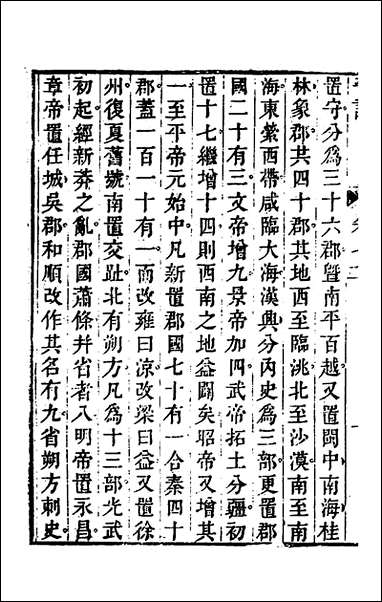 置守分爲三十六郡曁南平百越又置閩中南海桂
林象郡共四十郡其地西至臨洮北至沙漠南至南
海東縈西帶咸臨大海漢興分内史爲三部更置郡
國二十有三文帝增九景帝加四武帝拓土分疆初
置十七繼增十四則西南之地益闢矣昭帝又增其
一至平帝元始中凡新置郡國七十有一合秦四十
郡蓋一百一十有一而改雍曰涼改梁曰益又置徐
州復夏舊號南置交趾北有朔方凡爲十三部光武
初起經新莽之亂郡國蕭條并省者八明帝置永昌
章帝置任城吳郡和順改作其名有九省朔方刺史